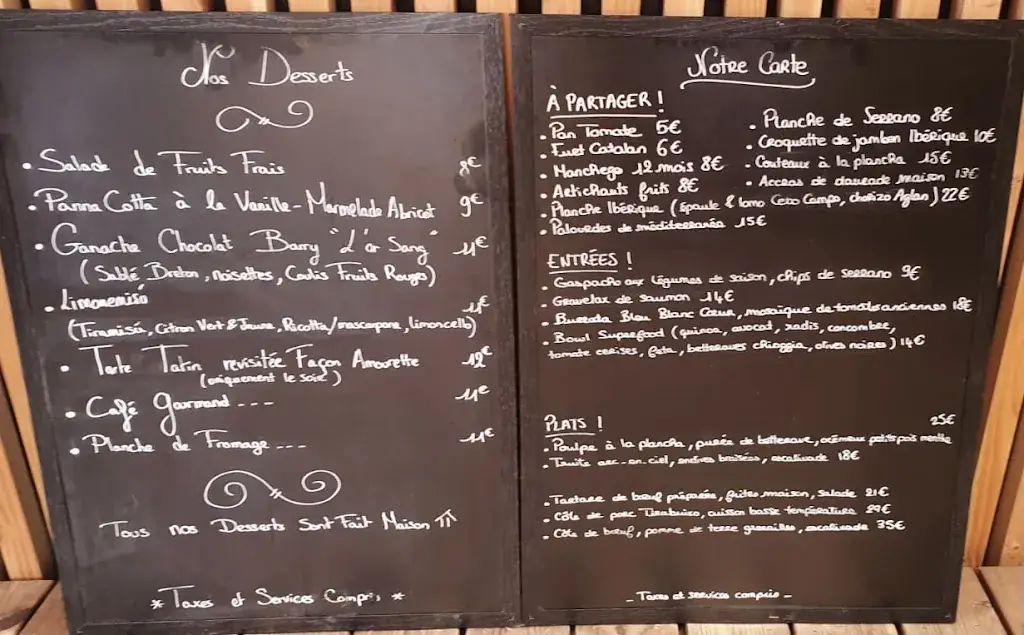 Nos Desserts
• Salade de Fruits Frais 8€
• Panna Cotta à la Vanille - Marmelade Abricot 9€
• Ganache Chocolat Barry "L'or Sang" 11€
(Sablé Breton, noisettes, Coulis Fruits Rouges)
• Limonemisù 11€
(Tiramisù, Citron Vert & Jaune, Ricotta/mascarpone, limoncello)
• Tarte Tatin revisitée Façon Amourette 12€
(uniquement le soir)
• Café Gourmand --- 11€
• Planche de Fromage --- 11€
Tous nos Desserts Sont Fait Maison
* Taxes et Services Compris *
Notre Carte
À PARTAGER !
• Pan Tomate 5€
• Fuet Catalan 6€
• Manchego 12 mois 8€
• Artichauts frits 8€
• Planche Ibérique (épaule & lomo Cebo Campo, chorizo Aglan) 22€
• Palourdes de méditerranéa 15€
• Planche de Serrano 8€
• Croquette de jambon Ibérique 10€
• Couteaux à la plancha 15€
• Accras de daurade maison 13€
ENTRÉES !
• Gaspacho aux légumes de saison, chips de Serrano 9€
• Gravelax de saumon 14€
• Burrata Bleu Blanc Cœur, mosaïque de tomates anciennes 18€
• Bowl Superfood (quinoa, avocat, radis, concombre,
tomate cerises, feta, betteraves chioggia, olives noires) 14€
PLATS ! 25€
• Poulpe à la plancha, purée de betterave, crémeux petits pois menthe
• Truite arc-en-ciel, endives braisées, escalivade 18€
• Tartare de bœuf préparée, frites maison, Salade 21€
• Côte de porc Tirabuixo, cuisson basse température 29€
• Côte de bœuf, pomme de terre grenailles, escalivade 35€
- Taxes et services compris -